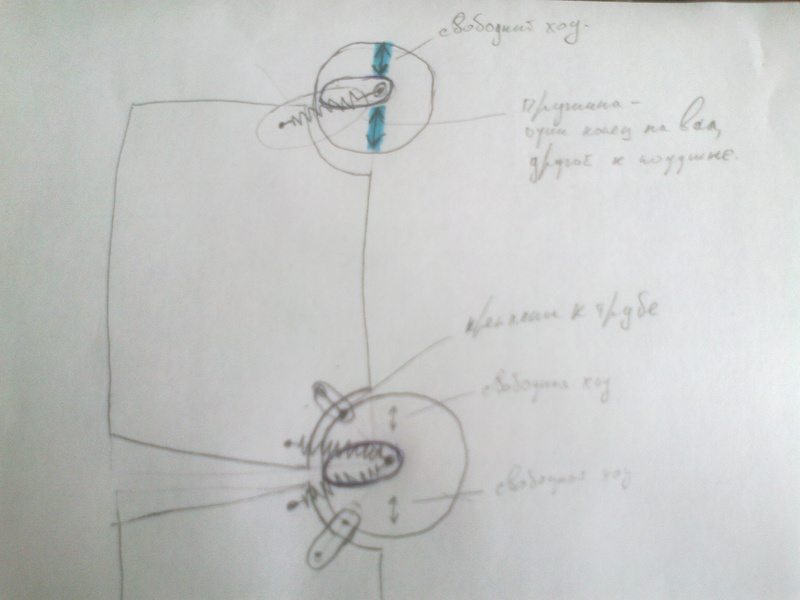 свободний ход-
Пружинна-
один конец на вал,
другой к подушке.
крепление к трубе
свободний ход
свободной ход